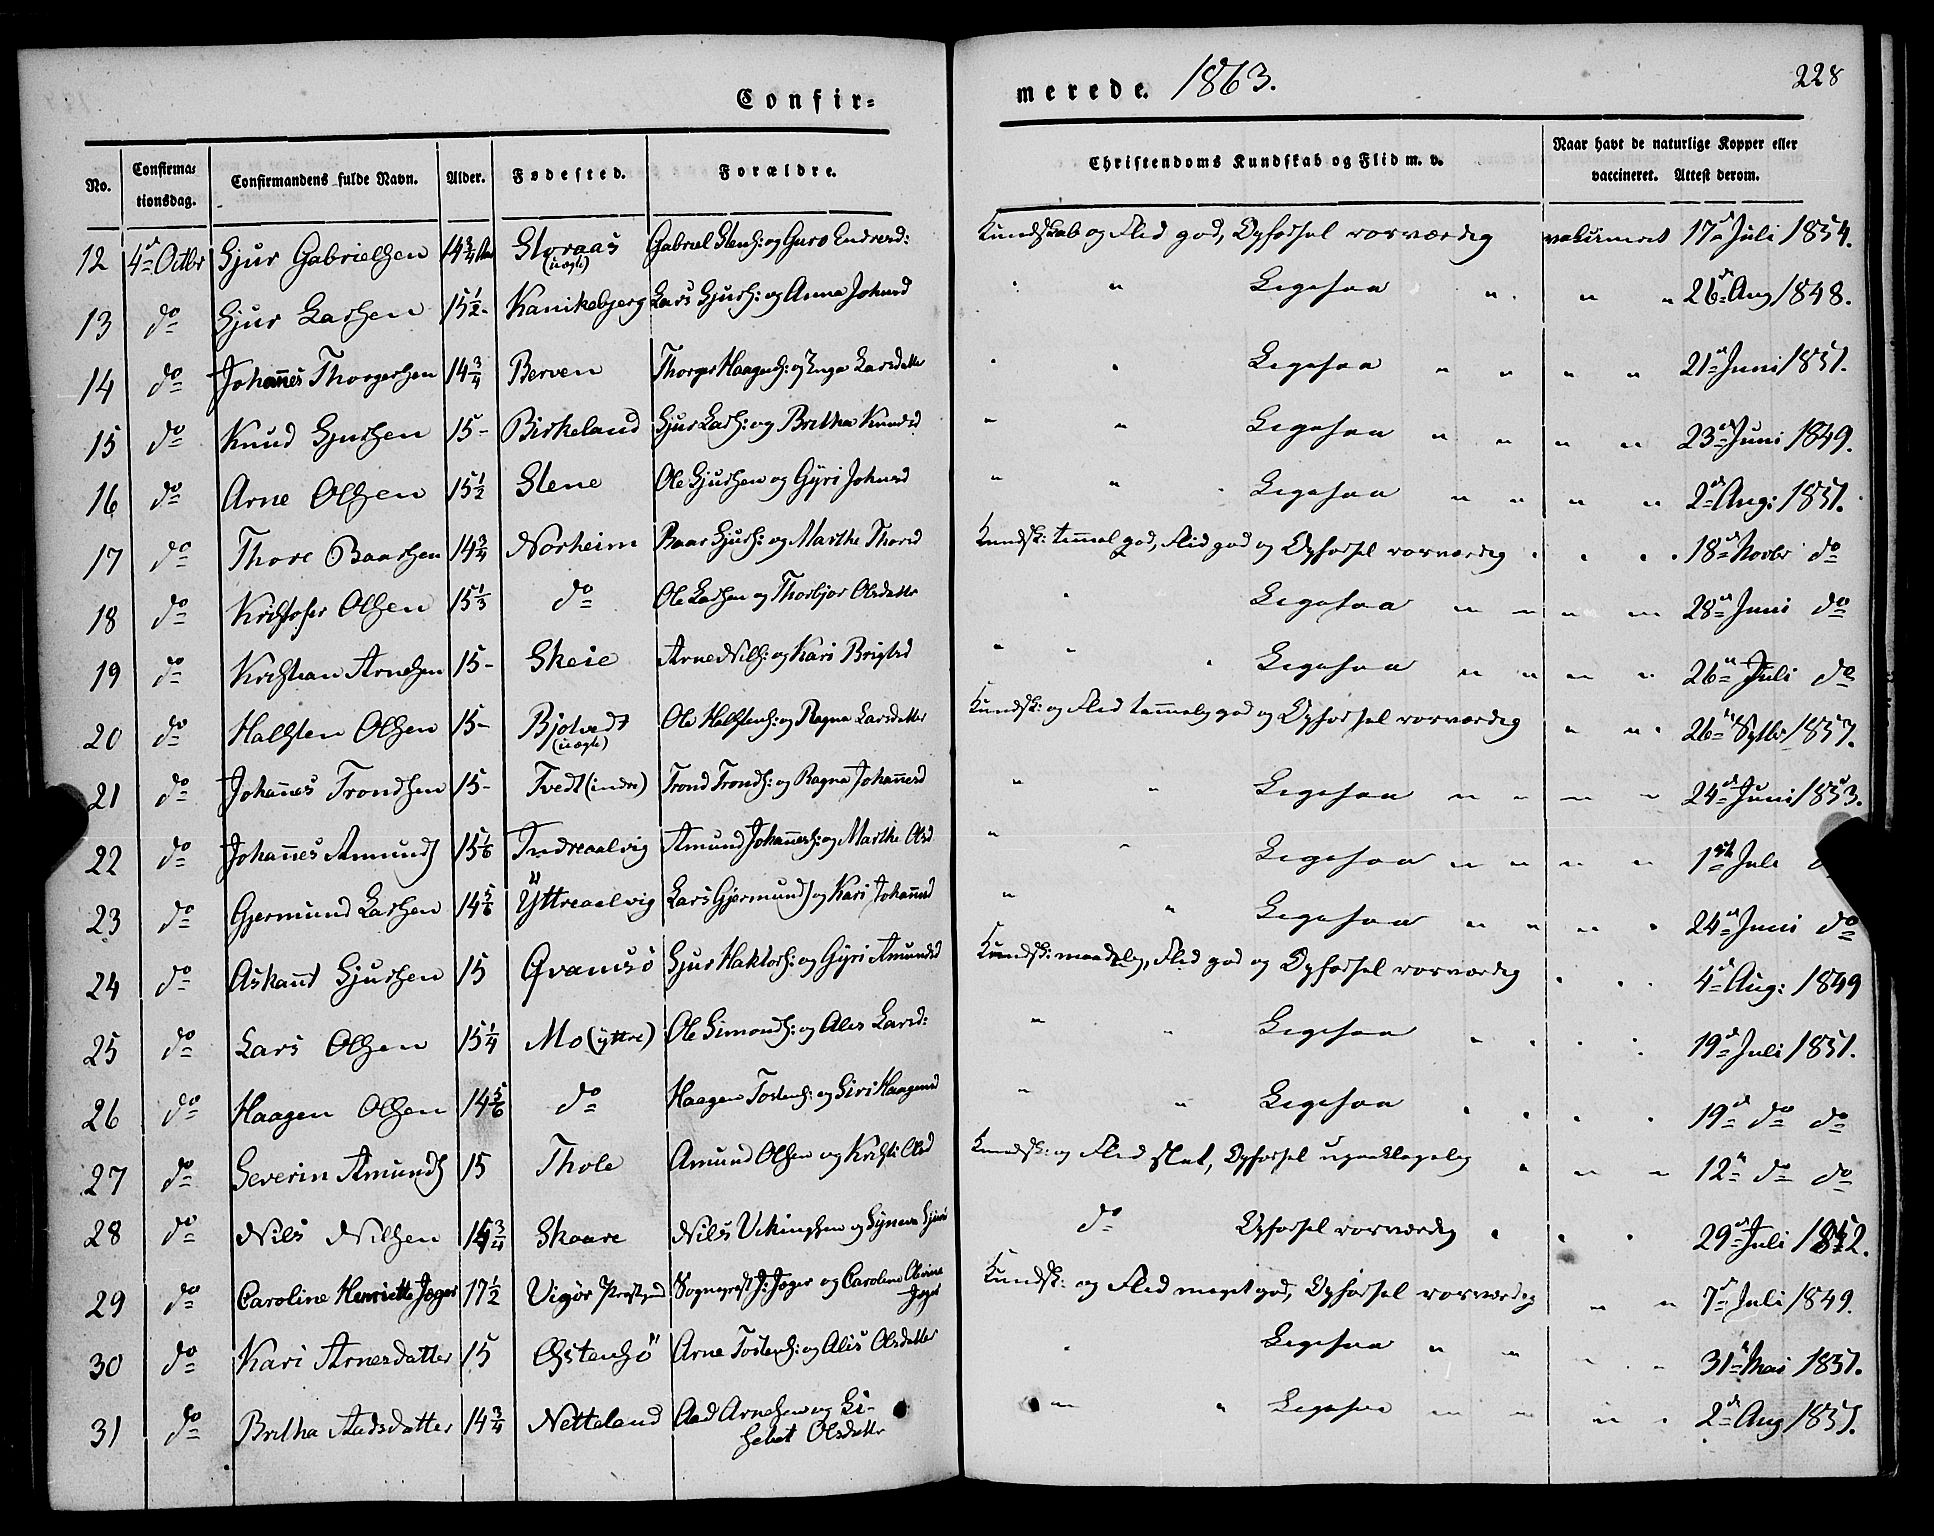 Confir=
merede. 1863.
228
No. Confirma=tionsdag. Confirmandens fulde Navn. Alder. Fødested. Forældre. Christendoms Kundskab og Flid m. v. Naar havt de naturlige Kopper eller vaccineret. Attest derom.
12 4de Octbr Sjur Gabrielsen 14 3/4 Aar Storaas (uægte) Gabriel Stens: og Guro Endresd: Kundskab og Flid god, Opførsel rosværdig vakcineret 17de Juli 1854.
13 do Sjur Larsen 15 1/2 - Kanikebjerg Lars Sjurs: og Anna Johnsd " Ligesaa " " " 26de Aug 1848.
14 do Johannes Thorgersen 14 3/4 Berven Thorger Haagens: og Inga Larsdatter " " Ligesaa " " " " 21de Juni 1851.
15 do Knud Sjursen 15 - Birkeland Sjur Lars: og Britha Knudsd " " Ligesaa " " " " 23de Juni 1849.
16 do Arne Olsen 15 1/2 Stene Ole Sjursen og Gyri Johnsd " " Ligesaa " " " " 2den Aug: 1851.
17 do Thore Baarsen 14 3/4 Norheim Baar Sjurs: og Marthe Thorsd Kundsk: temmel god, Flid god og Opførsel rosværdig " " " 18de Novbr do
18 do Kristofer Olsen 15 1/3 do Ole Larsen og Thorbjør Olsdatter " Ligesaa " " " " 28de Juni do
19 do Kristian Arnesen 15 - Skeie Arne Nils: og Kari Brigtsd " " Ligesaa " " " " 26de Juli do
20 do Halsten Olsen 15 - Bjotvedt (uægte) Ole Halstens: og Ragna Larsdatter Kundsk: og Flid temmelig god og Opførsel rosværdig " " " 26de Septbr 1857.
21 do Johannes Trondsen 15 - Tvedt (indre) Trond Tronds: og Ragna Johannesd " " Ligesaa " " " " 24de Juni 1853.
22 do Johannes Amunds 15 1/6 Indreaalvig Amund Johanness: og Marthe Olsd " " Ligesaa " " " " 1ste Juli
23 do Gjermund Larsen 14 5/6 Yttreaalvig Lars Gjermunds og Kari Johannesd " " Ligesaa " " " " 24de Juni do
24 do Askaut Sjursen 15 Qvamsø Sjur Haktors: og Gyri Amundsd Kundsk: maadelig, Flid god og Opførsel rosværdig " " " 4de Aug: 1849
25 do Lars Olsen 15 1/4 Mo (yttre) Ole Simons: og Ales Larsd: " " Ligesaa " " " " 19de Juli 1851.
26 do Haagen Olsen 14 5/6 do Haagen Tostens: og Siri Haagensd " " Ligesaa " " " " 19de do do
27 do Severin Amunds 15 Thole Amund Olsen og Kristi Olsd Kundsk: og Flid slet, Opførsel upaaklagelig " " " 12te do do
28 do Nils Nilsen 14 3/4 Skaare Nils Vikingsen og Synneva Sjursd do Opførsel rosværdig " " " 29de Juli 1852.
29 do Caroline Henriette Jæger 17 1/2 Vigør Prestgrd Sogneprest J: Jæger og Caroline Olivine Jæger Kundsk: og Flid meget god, Opførsel rosværdig " " 7de Juli 1849.
30 do Kari Arnesdatter 15 Østensø Arne Tostens: og Alis Olsdatter " Ligesaa " " " " 31te Mai 1851.
31 do Britha Aadsdatter 14 3/4 Netteland Aad Arnesen og Li-
sebet Olsdatter " " Ligesaa " " " " 2den Aug 1851.